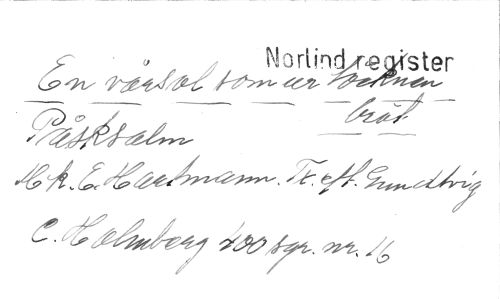 Norlind register
En vårsol som ur töcknen
bröt
Påsksalm
Mk. E. Hartmann. Tx. eft. Grundtvig
C. Holmberg 400 sgr. nr. 16